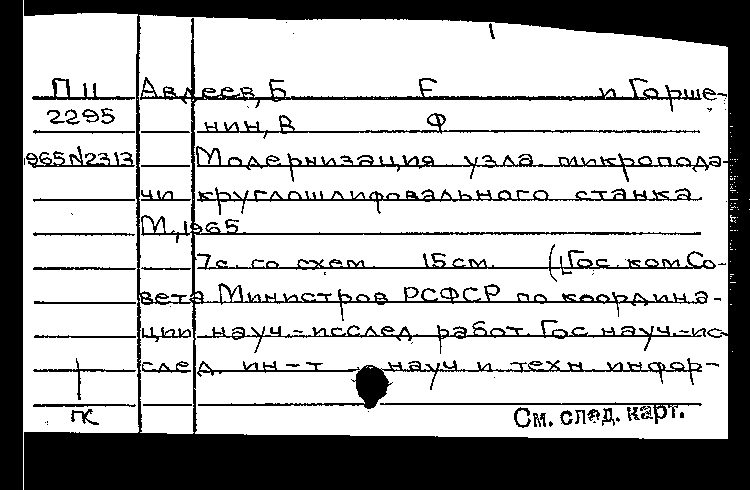 П 11 Авдеев, Б Е и Горше-
2295 нин, В Ф
965 N2313 Модернизация узла микропода-
чи круглошлифовального станка
М., 1965.
7 с. со схем. 15 см. ([Гос. ком. Со-
вета Министров РСФСР по координа-
ции науч.-исслед. работ. Гос науч.-ис-
след. ин-т науч и техн инфор-
ПК См. след. карт.